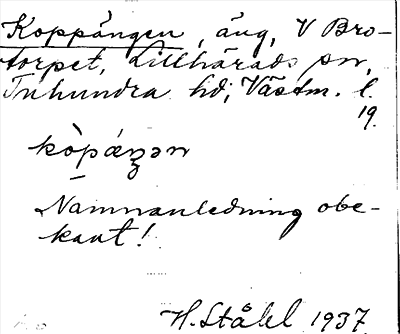 Koppängen, äng, V Bro-
torpet, Lillhärads sn,
Tuhundra hd; Västm. l.
19.
kòpáŋən
Namnanledning obe-
kant!
H. Ståhl 1937